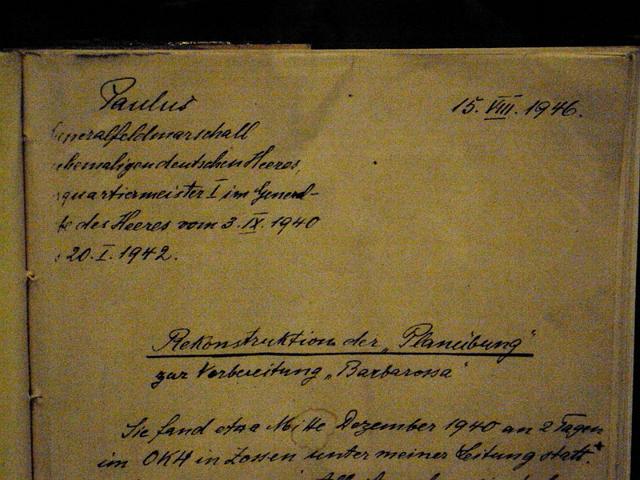 Paulus
15. VIII. 1946.
eneralfeldmarschall
ehemaligen deutschen Heeres,
quartiermeister I im General-
be des Heeres vom 3. IX. 1940
20. I. 1942.
Rekonstruktion der „Planübung"
zur Vorbereitung „Barbarossa"
Sie fand etwa Mitte Dezember 1940 an 2 Tagen
im OKH in Zossen unter meiner Leitung statt.